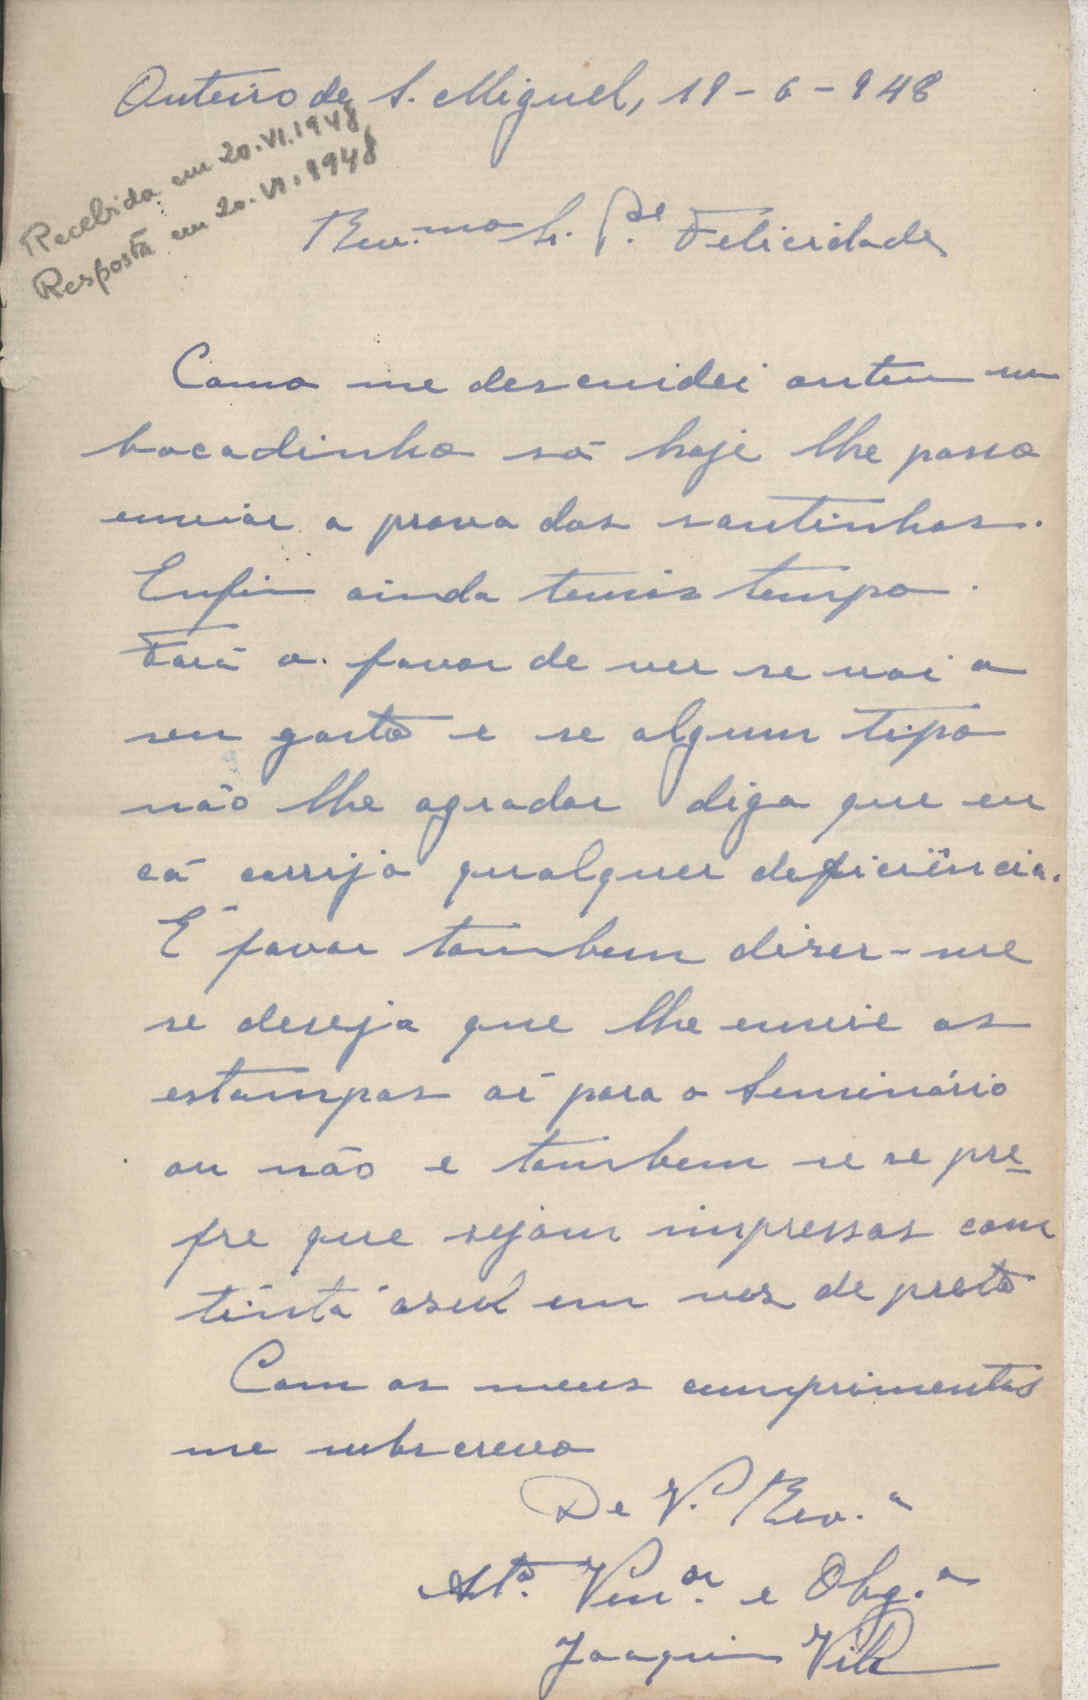 Outeiro de S. Miguel, 19-6-948
Recebida em 20.VI.1948
Resposta em 20.VI.1948
Rev.mo Sr. P.e Felicidades
Como me descuidei ontem um
bocadinho só hoje lhe posso
enviar a prova dos santinhos.
Enfim ainda temos tempo.
Fará o favor de ver se vai a
seu gosto e se algum tipo
não lhe agradar diga que eu
cá corrijo qualquer deficiência.
É favor tambem dizer-me
se deseja que lhe envie as
estampas aí para o Seminário
ou não e tambem se se pre-
fre que sejam impressas com
tinta azul em vez de preto
Com os meus cumprimentos
me subscrevo
De V. Rev.a
At.o Ven.or e Obg.o
Joaquim